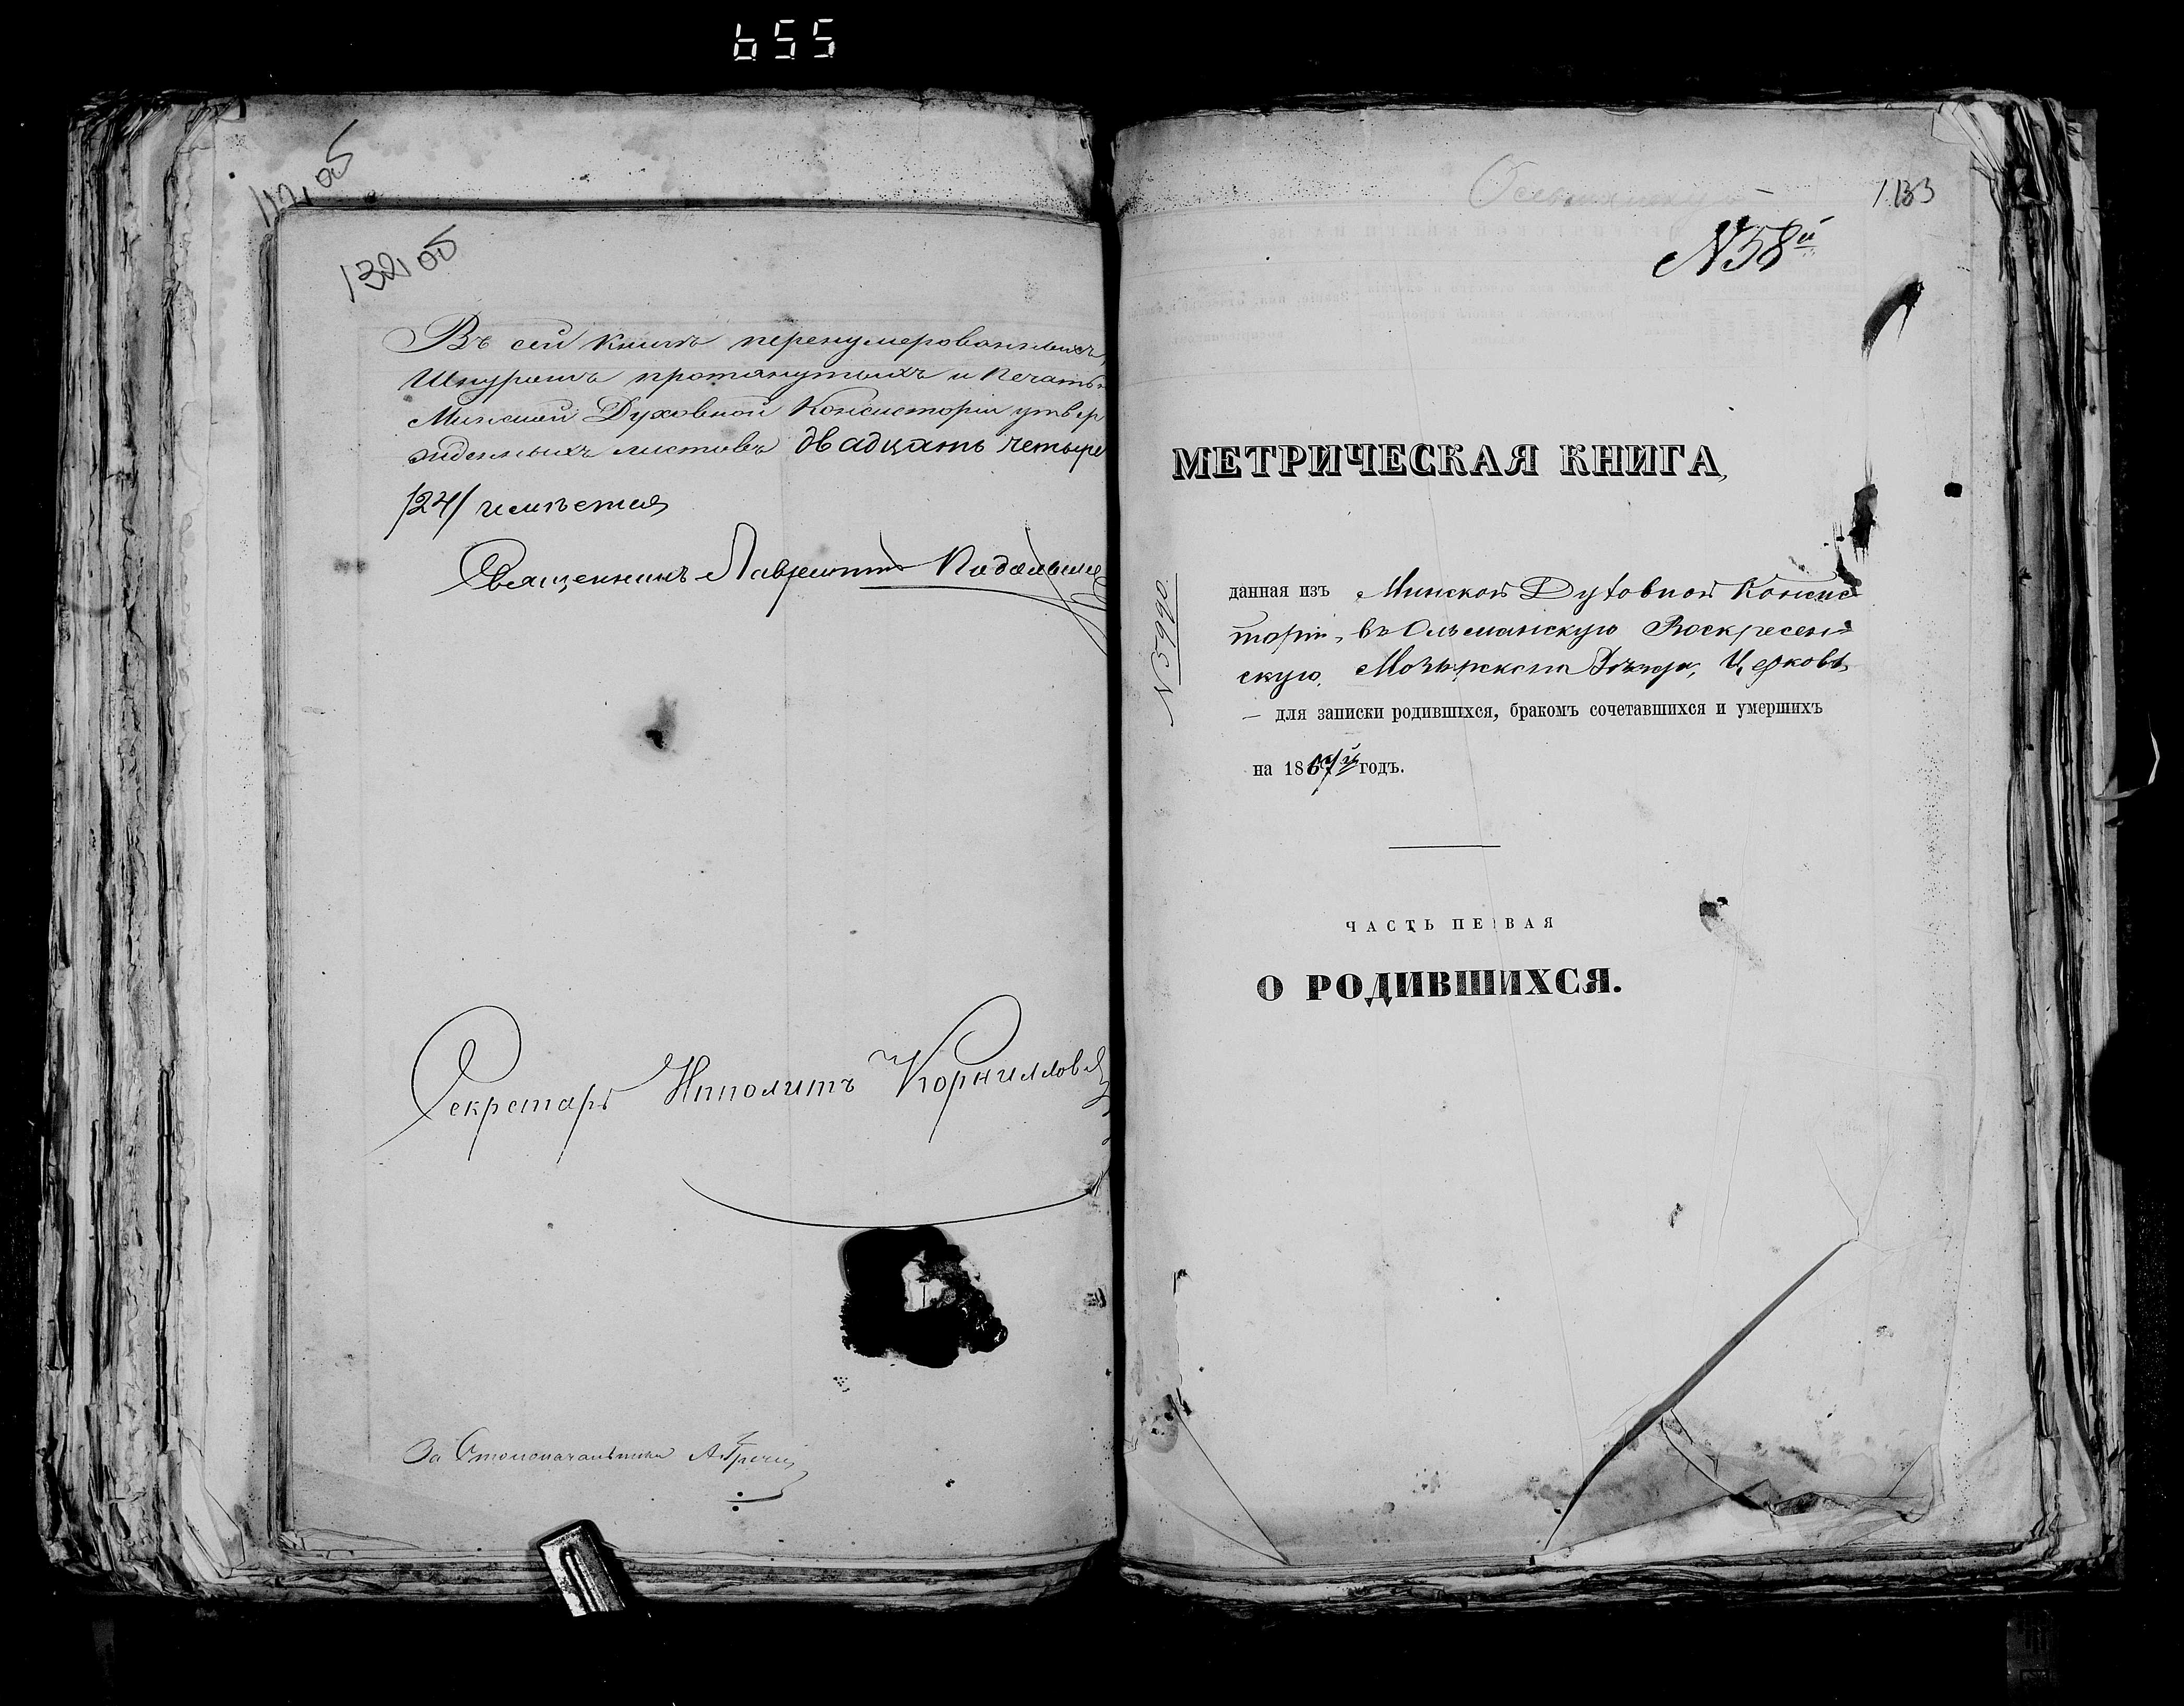 655
112 об
132 об
Въ сей книгѣ перенумерованныхъ,
Шнуромъ протянутыхъ и Печатью
Минской Духовной Консисторіи утвер
жденныхъ листовъ двадцать четыре
/24/ имѣется
Священникъ Лаврентій
Секретарь Ипполитъ Корниллов
За Столоначальника
133
N 58й
МЕТРИЧЕСКАЯ КНИГА,
данная изъ Минской Духовной Консис
торіи, въ Ольманскую Воскресен=
скую, Мозырскаго Уѣзда, Церковь
— для записки родившихся, бракомъ сочетавшихся и умершихъ
на 1867й годъ.
N 5990
ЧАСТЬ ПЕРВАЯ
О РОДИВШИХСЯ.